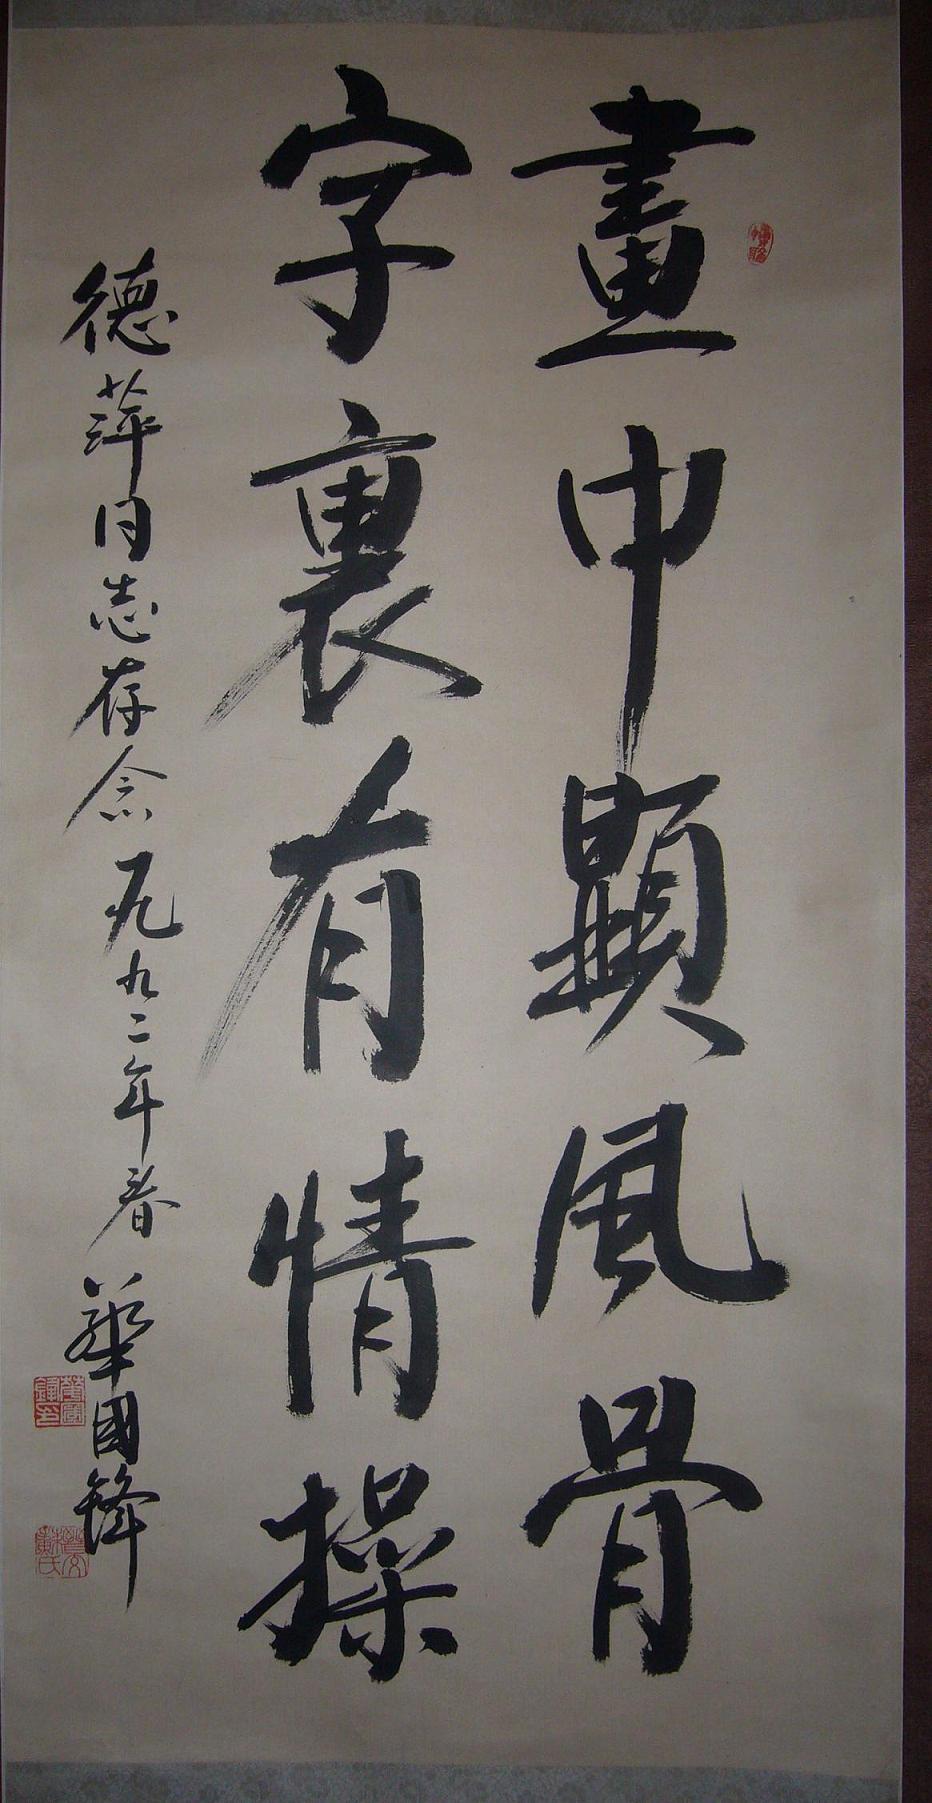 畫中顯風骨
字裏有情操
德萍同志存念 一九九二年春 華國鋒
華國鋒印